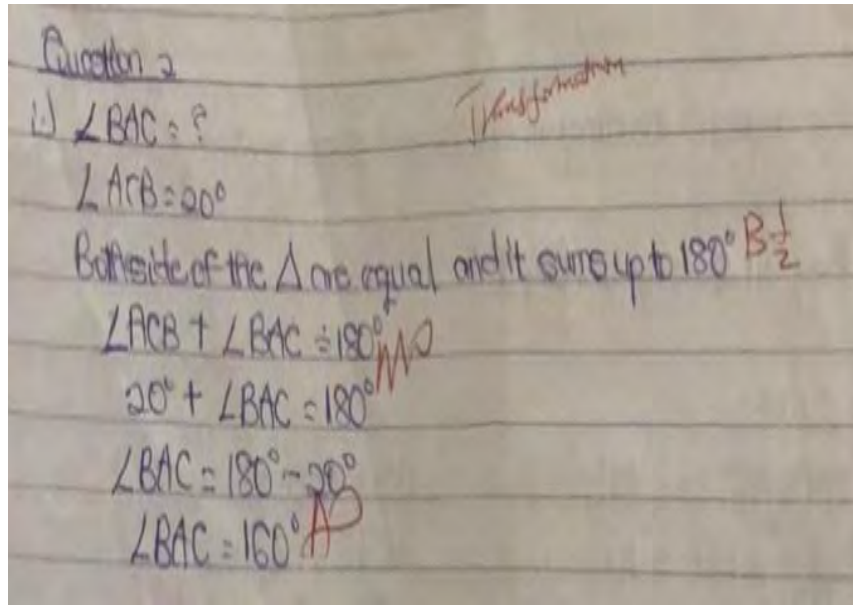 Question 2
i.) ∠BAC = ?
Transformation
∠ACB = 20°
Both side of the Δ are equal and it sums up to 180° B½
∠ACB + ∠BAC = 180° M0
20° + ∠BAC = 180°
∠BAC = 180° - 20°
∠BAC = 160° A0